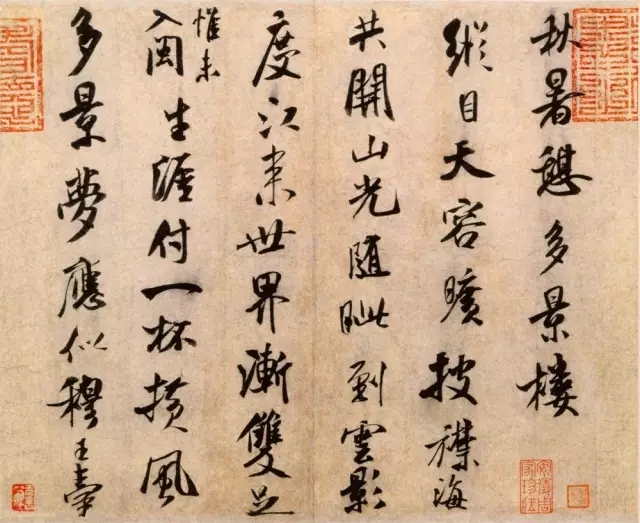 秋暑憩多景樓
縱目天容曠披襟海
共開山光隨眦到雲影
度江来世界漸雙足
惟未
入閩生涯付一杯橫風
多景夢應似穆王臺